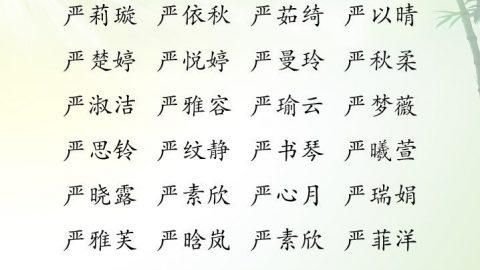 严莉璇 严依秋 严茹绮 严以晴
严楚婷 严悦婷 严曼玲 严秋柔
严淑洁 严雅容 严瑜云 严梦薇
严思铃 严纹静 严书琴 严曦萱
严晓露 严素欣 严心月 严瑞娟
严雅芙 严晗岚 严素欣 严菲洋